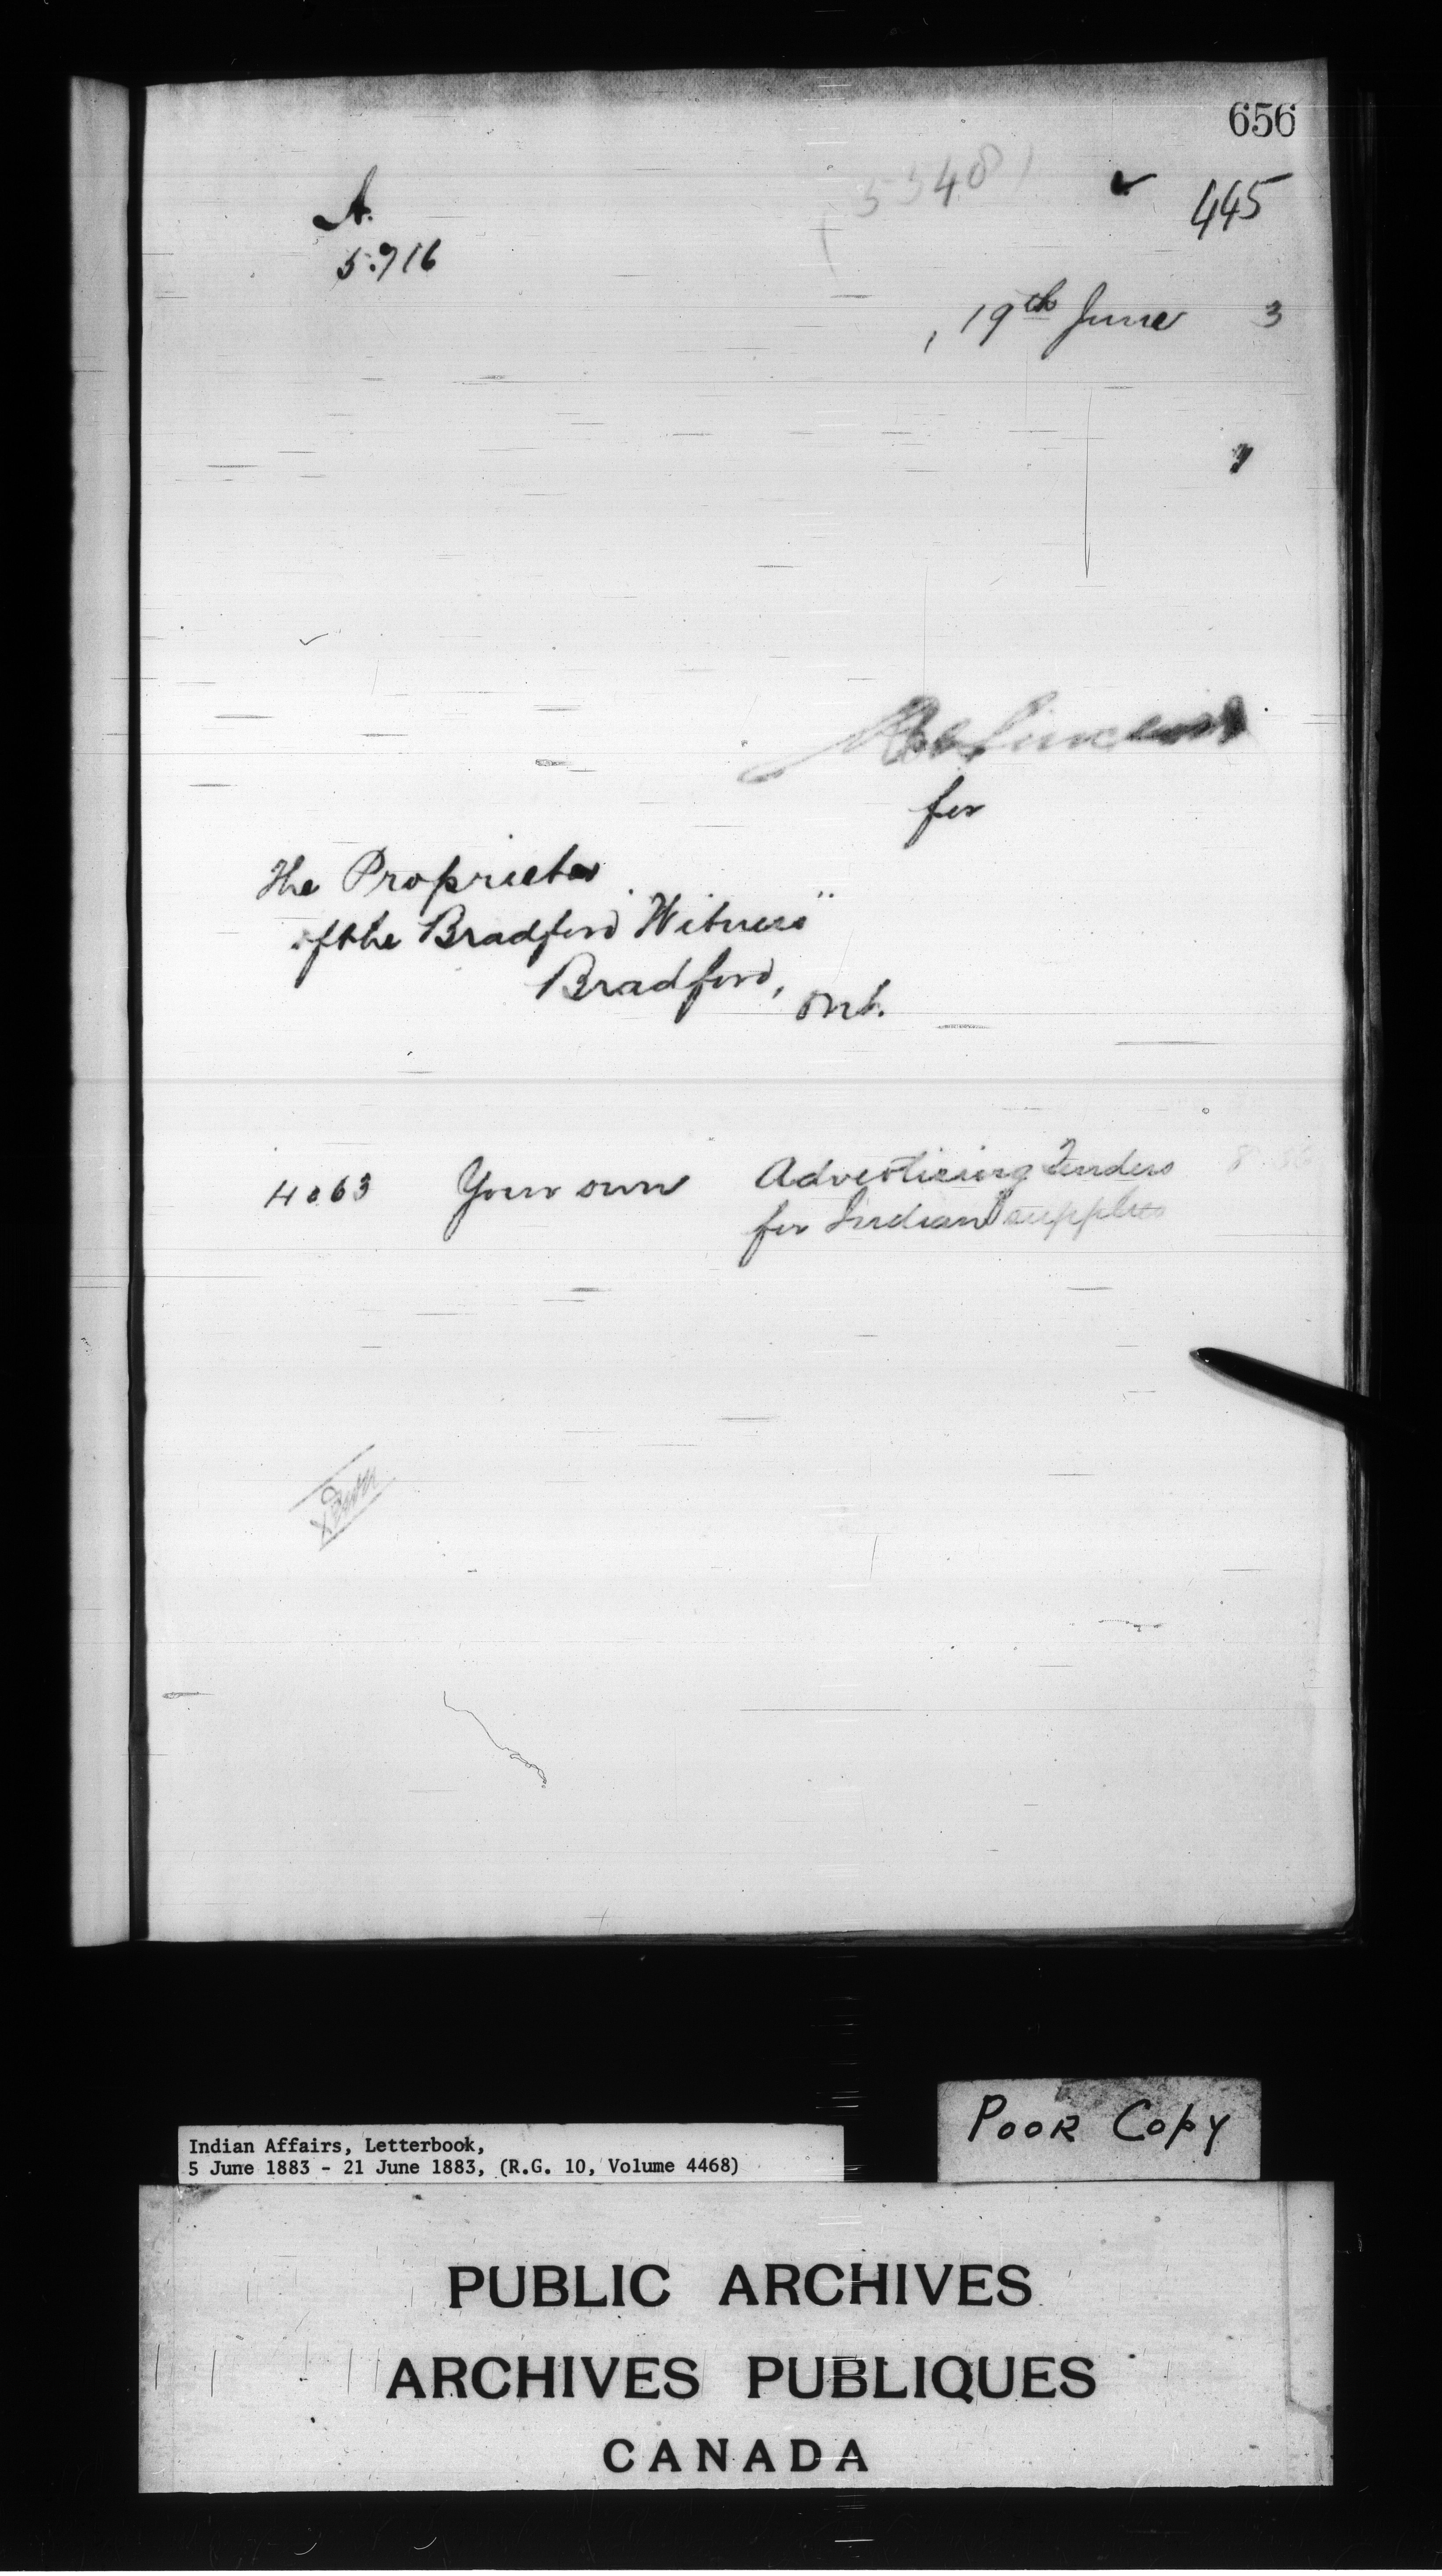 656
445
A.
5.716
, 19th June 3
for
The Proprietor
of the Bradford "Witness"
Bradford,
Ont.
4063 Your own Advertising Tenders
for Indian supplies
Poor Copy
Indian Affairs, Letterbook,
5 June 1883 - 21 June 1883, (R.G. 10, Volume 4468)
PUBLIC ARCHIVES
ARCHIVES PUBLIQUES
CANADA